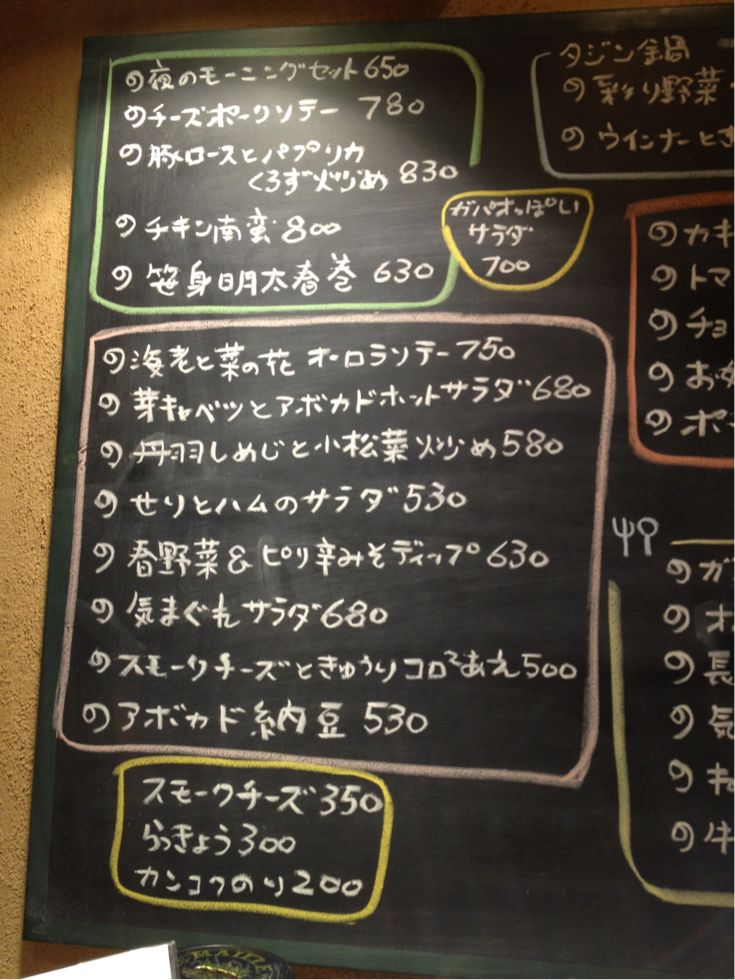 の夜のモーニングセット650
のチーズポークソテー 780
の豚ロースとパプリカ
くろず炒め 830
のチキン南蛮800
の笹身明太春巻 630
ガパオっぽい
サラダ
700
の海老と菜の花 オーロラソテー750
の芽キャベツとアボカドホットサラダ680
の丹羽しめじと小松菜炒め580
のせりとハムのサラダ530
の春野菜&ピリ辛みそディップ630
の気まぐれサラダ680
のスモークチーズときゅうりコロ²あえ500
のアボカド納豆 530
スモークチーズ350
らっきょう300
カンコクのり200
タジン鍋
の彩り野菜
のウインナーとき
のカキ
のトマ
のチョ
のお
のポ
のガ
のオ
の長
の気
のキ
の牛